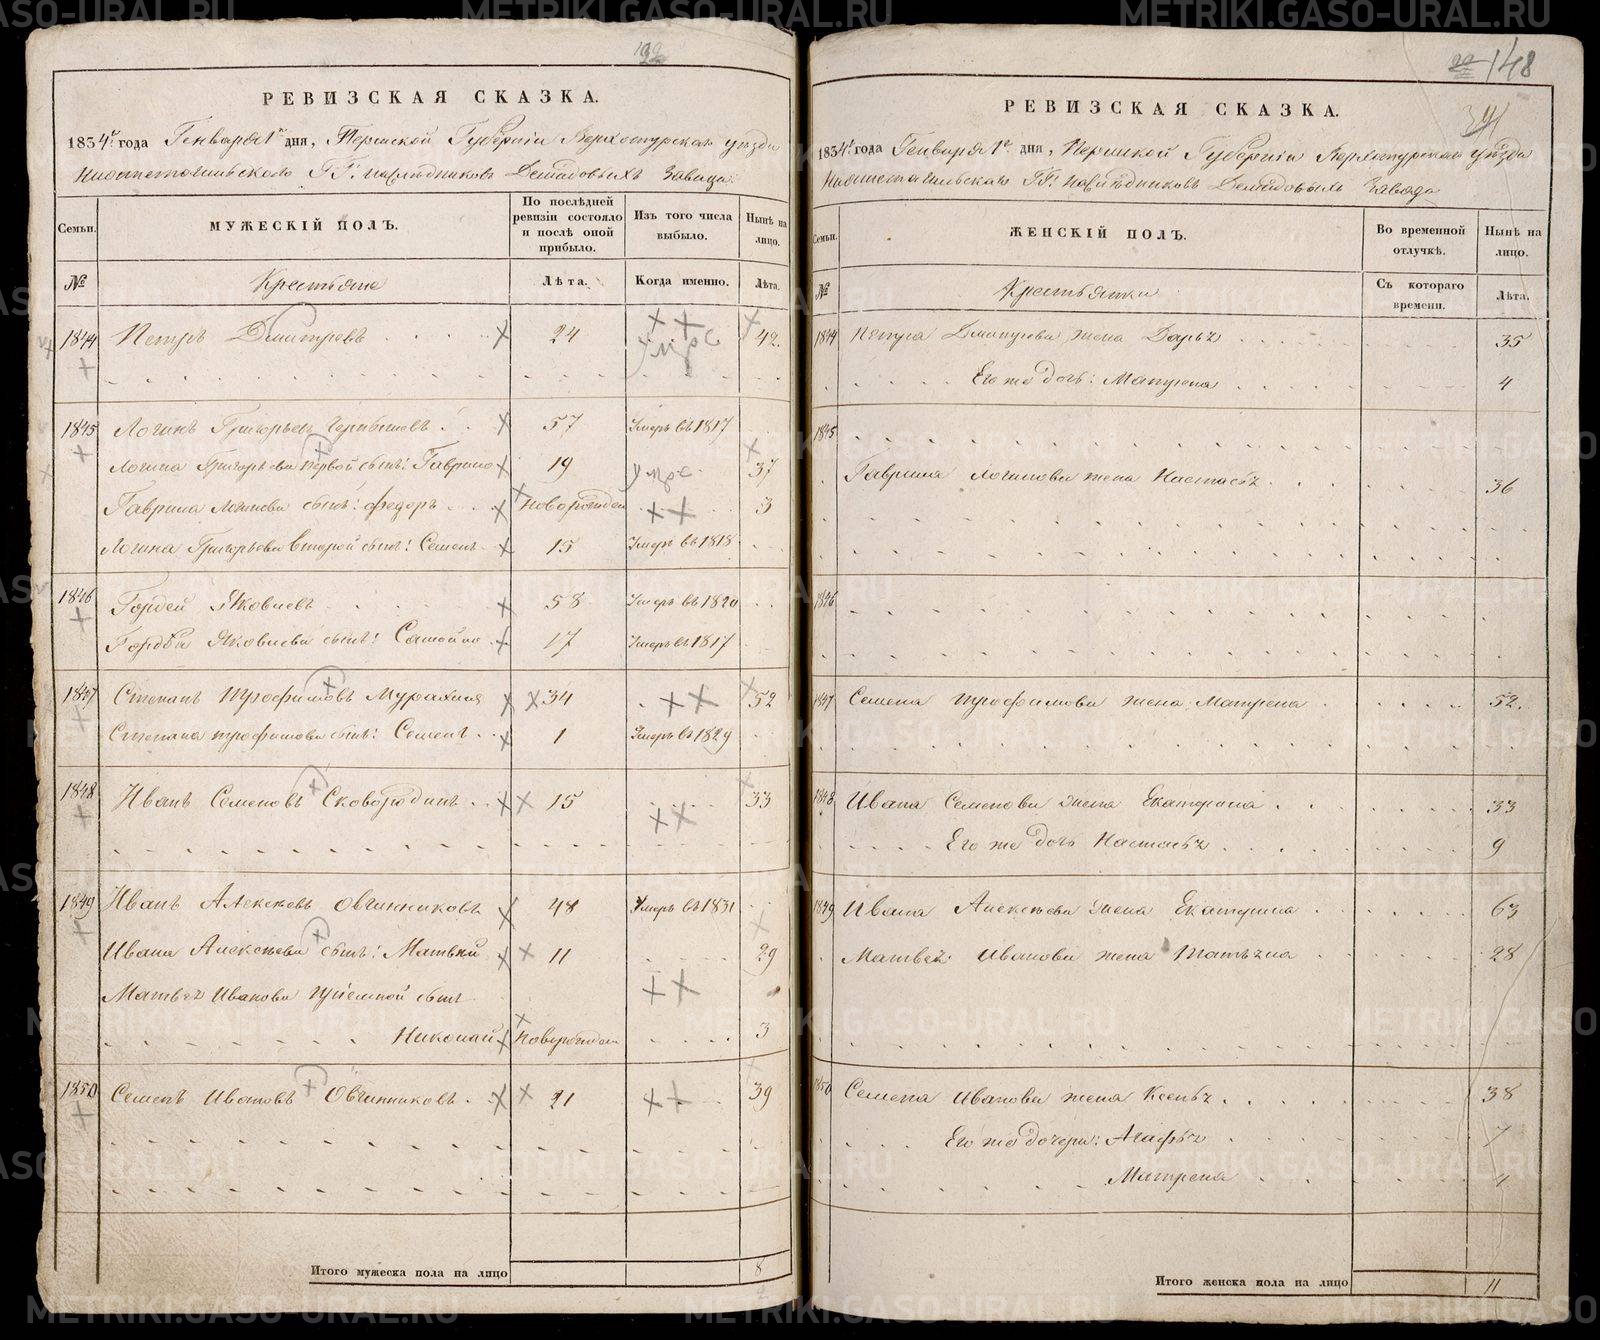 192
РЕВИЗСКАЯ СКАЗКА.
1834 года Генваря 1 дня, Пермской Губерніи Верхотурскаго уѣзда
Нижнетагильскаго ГГ. наслѣдниковъ Демидовыхъ Завода.
Семьи.
МУЖЕСКІЙ ПОЛЪ.
По послѣдней ревизіи состояло и послѣ оной прибыло.
Изъ того числа выбыло.
Нынѣ на лицо.
№
Крестьяне
Лѣта.
Когда именно.
Лѣта.
1844 Петръ Дмитріевъ 24 42.
1845 Логинъ Григорьевъ 57 Умеръ въ 1817
Логина Григорьева первой сынъ: Гаврило 19 37
Гаврила Логинова сынъ: Федоръ Новорожден 3
Логина Григорьева второй сынъ: Семенъ 15 Умеръ въ 1818
1846 Гордей Яковлевъ 58 Умеръ въ 1820
Гордѣя Яковлева сынъ: Самойло 17 Умеръ въ 1817
1847 Степанъ Трофимовъ 34 52
Степана Трофимова сынъ: Семенъ 1 Умеръ въ 1829
1848 Иванъ Семеновъ Сковородинъ 15 33
1849 Иванъ Алексѣевъ Овчинниковъ 48 Умеръ въ 1831
Ивана Алексѣева сынъ: Матвѣй 11 29
Матвѣя Иванова приемной сынъ
Николай Новорожден 3
1850 Семенъ Ивановъ Овчинниковъ 21 39
Итого мужеска пола на лицо 8
148
РЕВИЗСКАЯ СКАЗКА.
1834 года Генваря 1 дня, Пермской Губерніи Верхотурскаго уѣзда
Нижнетагильскаго ГГ. наслѣдниковъ Демидовыхъ Завода
Семьи.
ЖЕНСКІЙ ПОЛЪ.
Во временной отлучкѣ.
Нынѣ на лицо.
№
Крестьянки
Съ котораго времени.
Лѣта.
1844 Петра Дмитріева жена Дарья 35
Его же дочь: Матрена 4
1845
Гаврила Логинова жена Настасья 36
1846
1847 Семена Трофимова жена Матрена 52.
1848 Ивана Семенова жена Екатерина 33
Его же дочь Настасья 9
1849 Ивана Алексѣева жена Екатерина 63
Матвѣя Иванова жена Татьяна 28
1850 Семена Иванова жена Ксенья 38
Его же дочери: Агафья 7
Матрена 4
Итого женска пола на лицо 11
METRIKI.GASO-URAL.RU